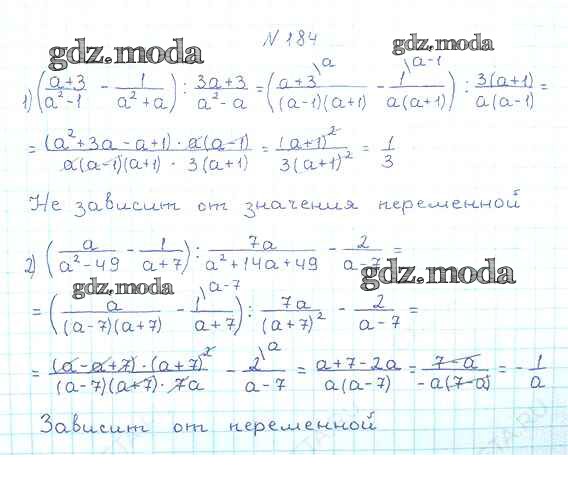 gdz.moda
N 184
gdz.moda
1) ((a+3)/(a²-1) - 1/(a²+a)) : (3a+3)/(a²-a) = ((a+3)/((a-1)(a+1)) \a - 1/(a(a+1)) \a-1) : 3(a+1)/(a(a-1)) =
= ((a²+3a-a+1)·a(a-1))/(a(a-1)(a+1)·3(a+1)) = (a+1)²/(3(a+1)²) = 1/3
Не зависит от значения переменной
2) (a/(a²-49) - 1/(a+7)) : 7a/(a²+14a+49) - 2/(a-7) =
gdz.moda
gdz.moda
= (a/((a-7)(a+7)) - 1/(a+7) \a-7) : 7a/(a+7)² - 2/(a-7) =
= ((a-a+7)·(a+7)²)/((a-7)(a+7)·7a) - 2/(a-7) \a = (a+7-2a)/(a(a-7)) = (7-a)/(-a(7-a)) = -1/a
Зависит от переменной